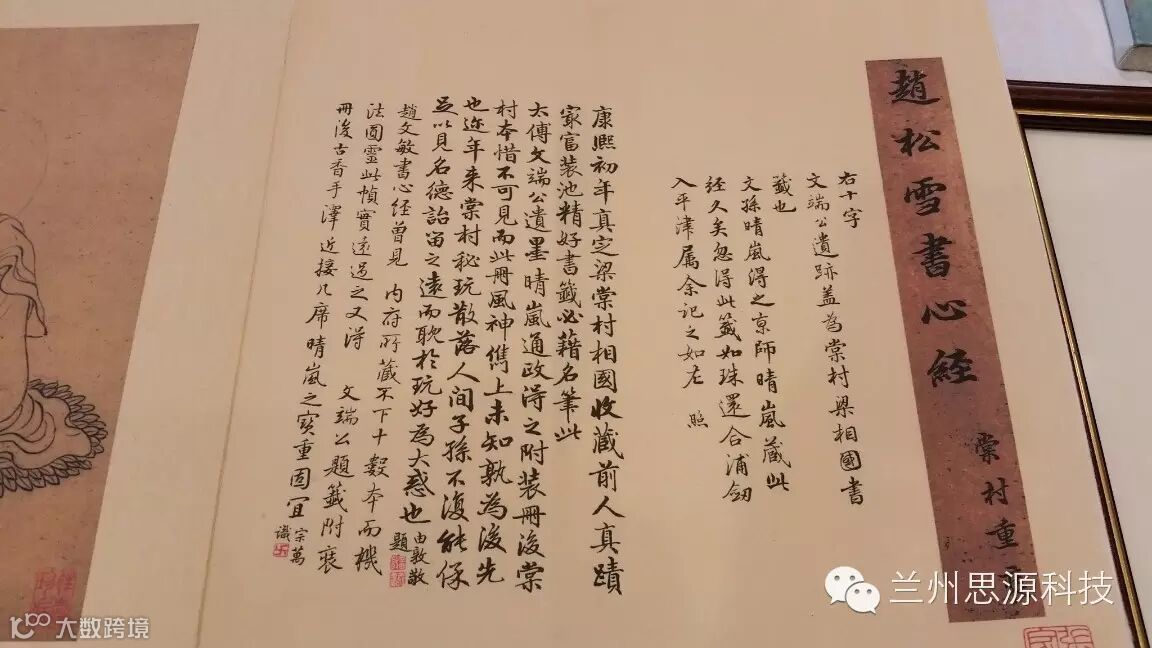 趙松雪書心経
棠村重
右十字
文端公遺跡蓋為棠村梁相國書
籤也
文孫晴嵐得之京師晴嵐藏此
經久矣忽得此籤如珠還合浦劒
入平津属余記之如左 照
康熙初年真定梁棠村相國收藏前人真蹟
家富装池精好書籤必藉名筆此
太傅文端公遺墨晴嵐通政得之附装冊後棠
村本惜不可見而此冊風神儁上未知孰為後先
也近年来棠村秘玩散落人间子孫不復能保
足以見名德詒留之遠而耽於玩好為大惑也 由敦敬
題
趙文敏書心經曽見 内府所藏不下十數本而機
法圓靈此幀實遠過之又得 文端公題籤附裝
冊後古香手澤近接几席晴嵐之寳重固宜 宗萬
識
兰州思源科技
大数跨境